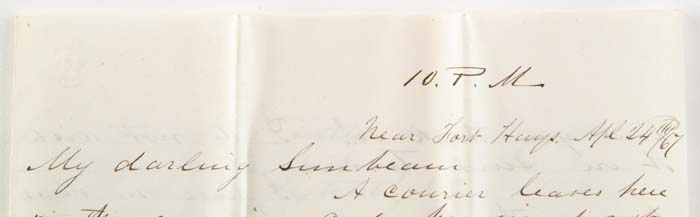 10. P. M
Near Fort Hays. Apl 24th/67
My darling Sunbeam
A courier leaves here